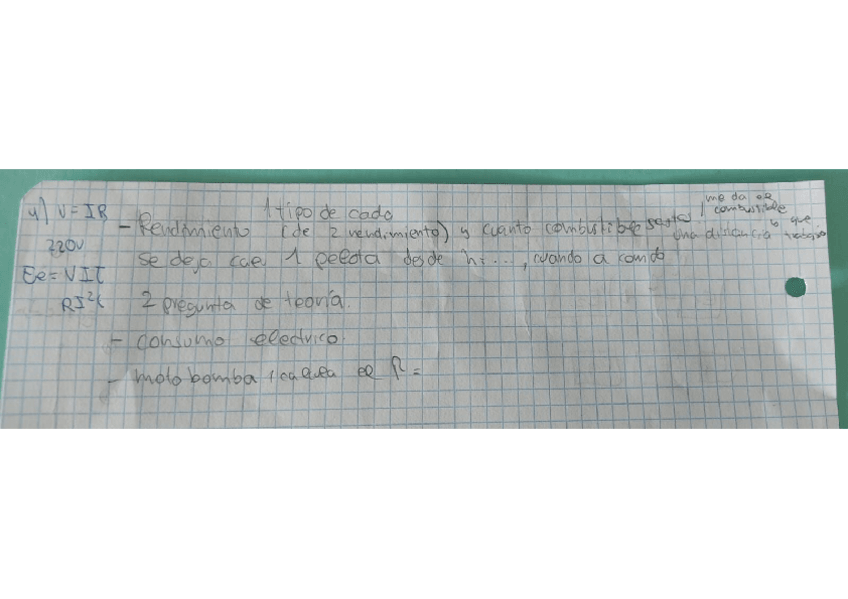 4) V=IR
220V
Ee=VIt
RI²t
1 tipo de cada
- Rendimiento (de 2 rendimiento) y cuanto combustible gastas
me da el combustible
una distancia que
se deja caer 1 pelota desde h=...., cuando a
2 pregunta de teoría.
- consumo electrico
- motobomba, calcula el P =